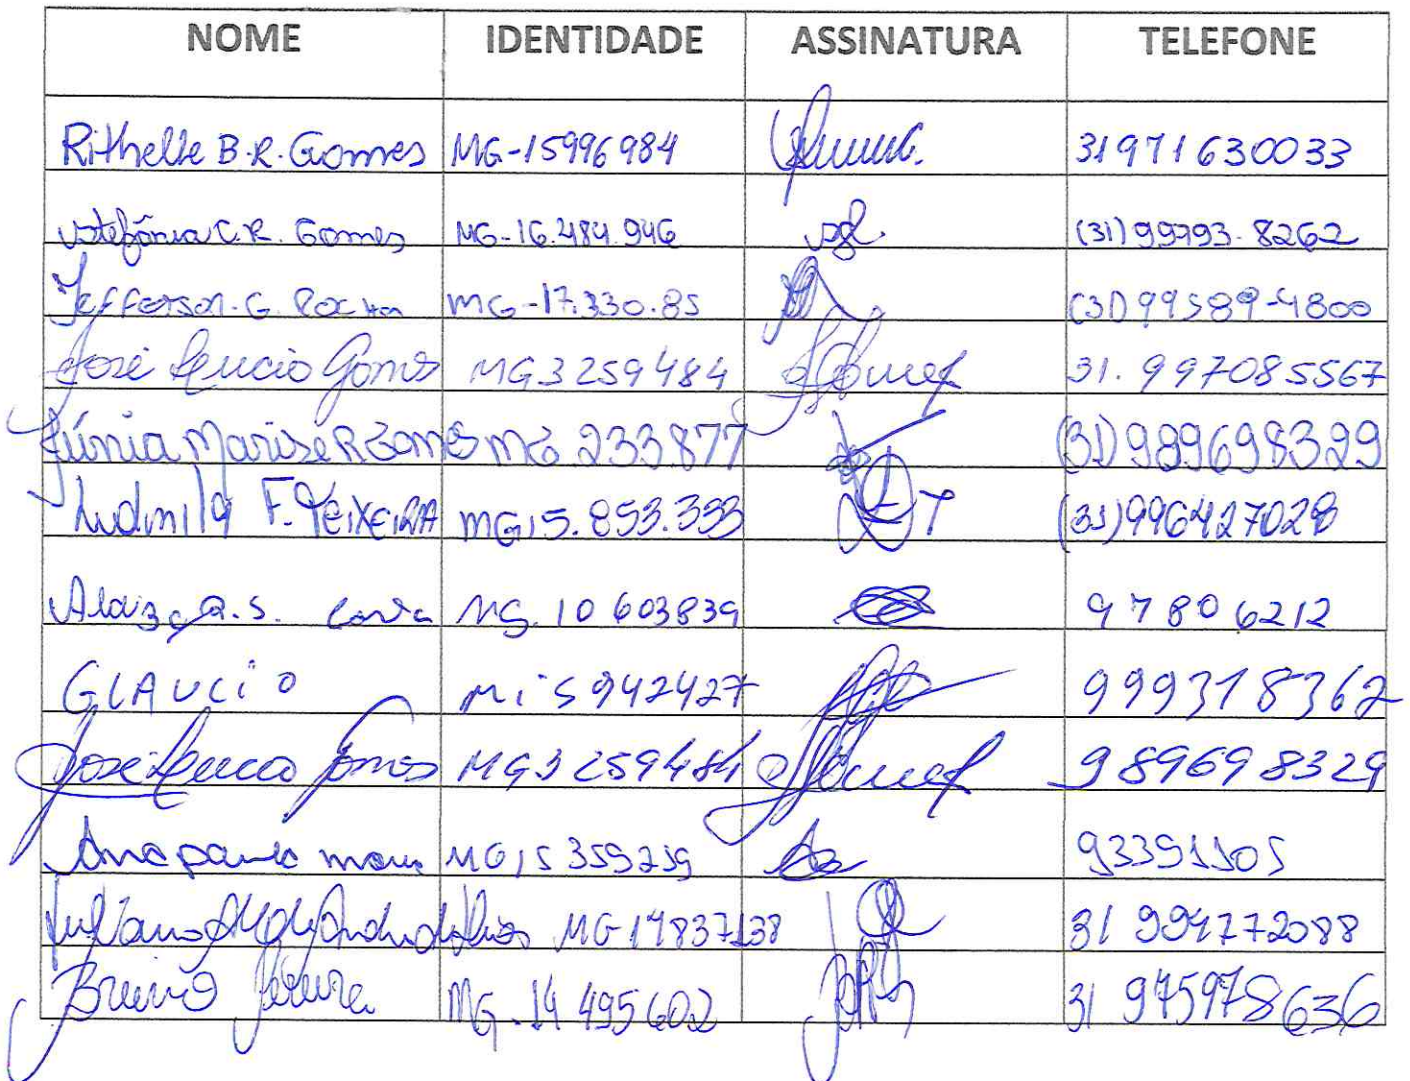 NOME IDENTIDADE ASSINATURA TELEFONE
Rithelle B.R. Gomes MG-15996984 31971630033
Stefânia C.R. Gomes MG-16.484.946 (31) 99793-8262
Jefferson. G. Rocha MG-17.330.85 (31) 99589-4800
José Lucio Gomes MG3259484 31.997085567
Júnia Marise R Gomes MG 233.877 (31) 989698329
Ludmila F. Teixeira MG15.853.333 (31) 996427028
R.S. Costa MG. 10 603839 97806212
GLAUCIO Mi5942427 999318362
José Lucio Gomes MG3259484 989698329
Ana paula MG15359759 93391105
MG 14837138 31 994772088
Bruno MG-14 495602 31 975978636